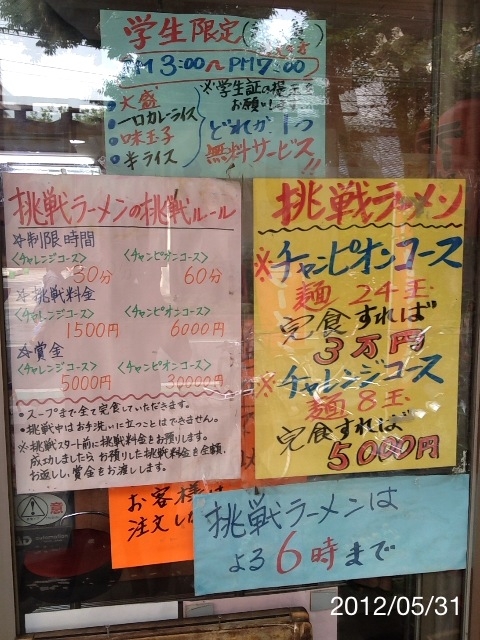 学生限定
PM 3:00〜PM7:00
・大盛
・一口カレーライス
・味玉子
・半ライス
※学生証の提示を
お願い!
どれか1つ
無料サービス!!
挑戦ラーメンの挑戦ルール
☆制限時間
<チャレンジコース> <チャンピオンコース>
30分 60分
☆挑戦料金
<チャレンジコース> <チャンピオンコース>
1500円 6000円
☆賞金
<チャレンジコース> <チャンピオンコース>
5000円 30000円
●スープまで全て完食していただきます。
●挑戦中はお手洗いに立つことはできません。
※挑戦スタート前に挑戦料金をお預りします。
成功しましたらお預りした挑戦料金を全額、
お返しし、賞金をお渡しします。
挑戦ラーメン
※チャンピオンコース
麺24玉
完食すれば
3万円
※チャレンジコース
麺8玉
完食すれば
5000円
注意
お客様は
注文し
挑戦ラーメンは
よる6時まで
2012/05/31